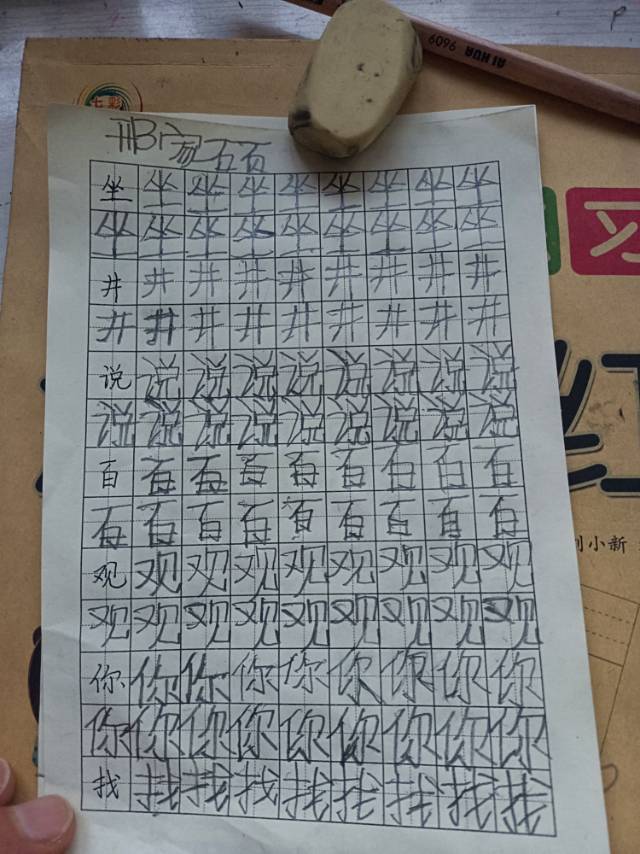 6096 AI HUA
七彩
习
邢家硕
坐坐坐坐坐坐坐坐坐
坐坐坐坐坐坐坐坐坐
井井井井井井井井井
井井井井井井井井井
说说说说说说说说说
说说说说说说说说说
百百百百百百百百百
百百百百百百百百百
小新
观观观观观观观观观
观观观观观观观观观
你你你你你你你你你
你你你你你你你你你
找找找找找找找找找